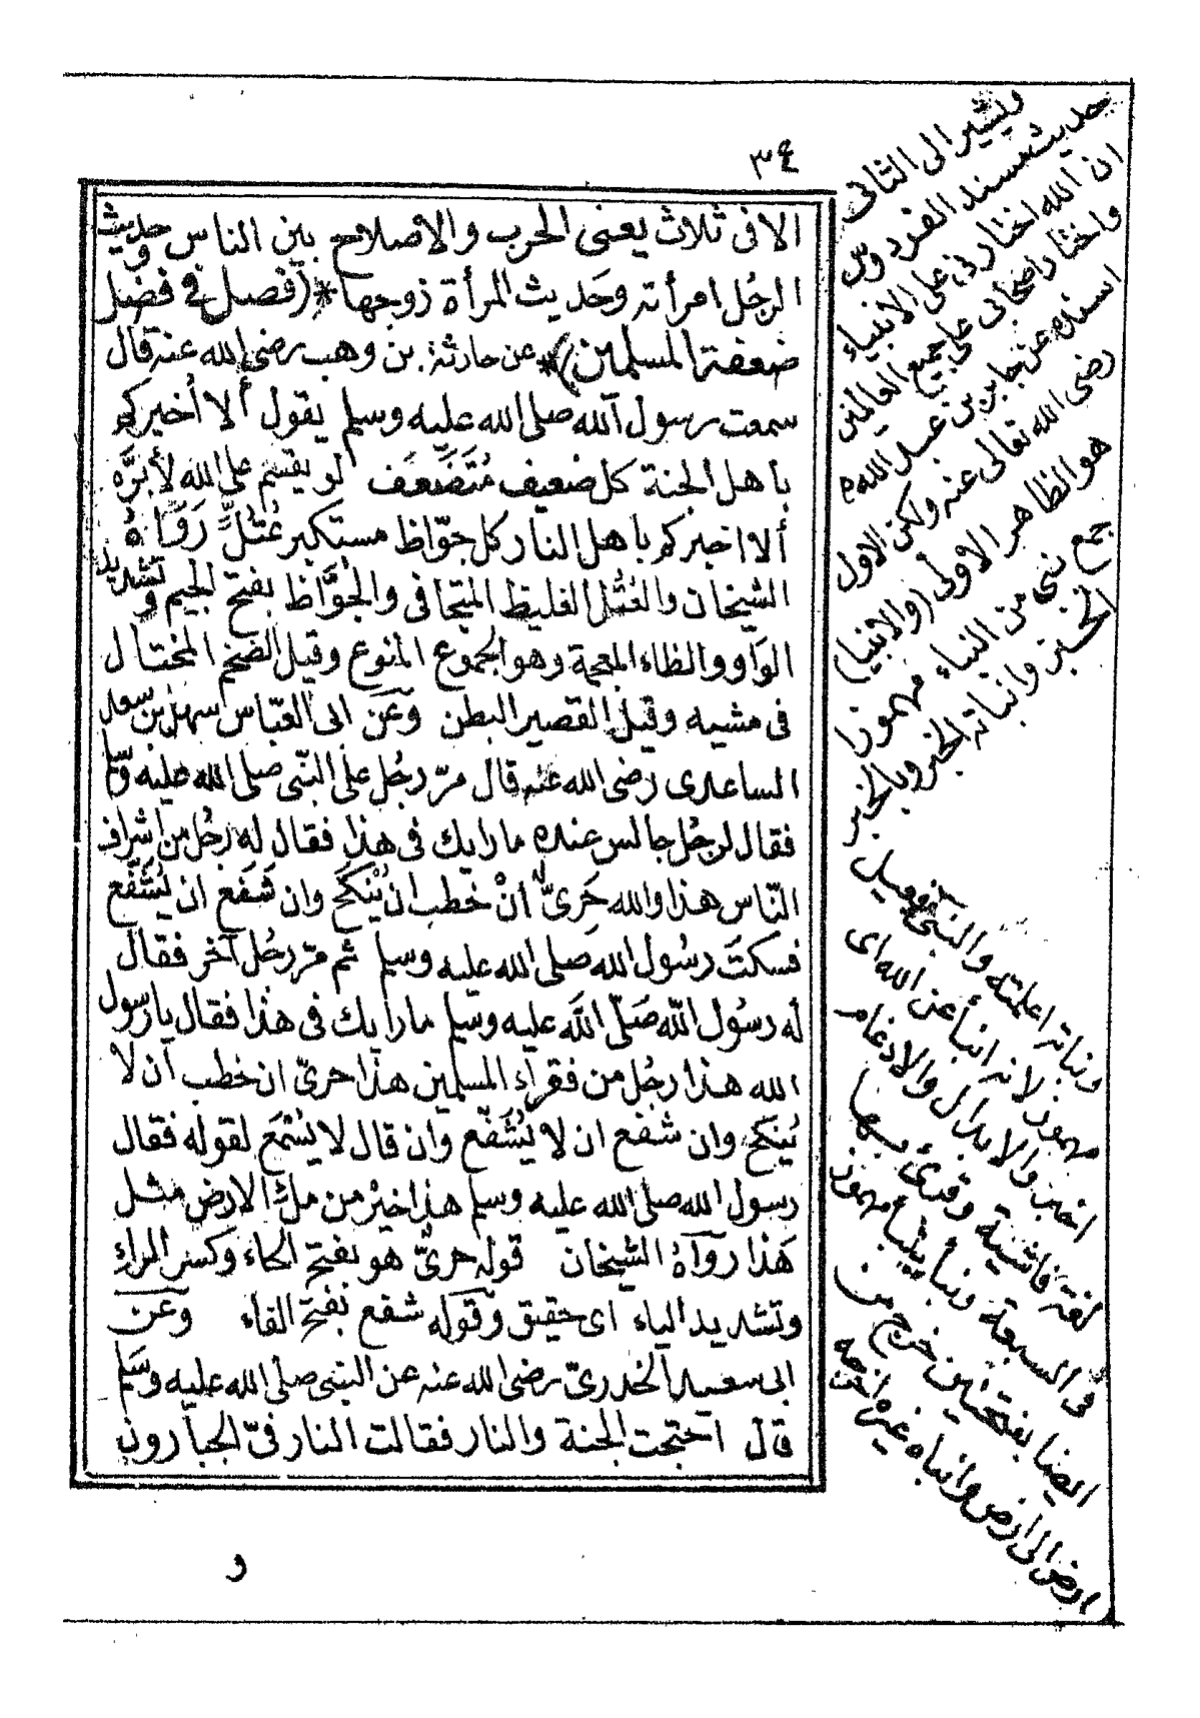 ٣٤
الا فى ثلاث يعنى الحرب والاصلاح بين الناس وحديث
الرجُل امرأته وحَديث المرأة زوجها *(فصل فى فضل
ضعفة المسلمين)* عن حارثة بن وهب رضى الله عنه قال
سمعت رسول الله صلى الله عليه وسلم يقول ألا أخبركم
باهل الجنة كل ضعيف مُتَضَعَّف لو يقسم على الله لأبَرَّه
ألا اخبركم باهل النار كل جوّاظ مستكبر عُتُلٍّ رَوَاهُ
الشيخان والعُتُلّ الغليظ المتجافى والجَوَّاظ بفتح الجيم وتشديد
الواو والظاء المعجمة وهو الجموع المنوع وقيل الضخم المختال
فى مشيه وقيل القصير البطن وعَن ابى العبّاس سهل بن سعد
الساعدى رضى الله عنه قال مرّ رجُل على النّبى صلى الله عليه وسلم
فقال لرجُل جالس عنده ما رايك فى هذا فقال له رجُل من اشراف
النّاس هذا والله حَرىٌّ انْ خطب ان يُنْكَحَ وان شَفَع ان يُشَفَّع
فسكتَ رسُول الله صلى الله عليه وسلم ثم مرّ رجُل آخر فقال
له رسُول الله صَلّى الله عليه وسلم ما رايك فى هذا فقال يا رسول
الله هذا رجُل من فقرآء المسلمين هذا حرىّ ان خطب ان لا
يُنكح وان شفع ان لا يُشَفّع وان قال لا يُسْمَع لقوله فقال
رسول الله صلى الله عليه وسلم هذا خيْر من ملْئ الارض مثل
هَذا روَاهُ الشيخان قوله حرىٌّ هو بفتح الحاء وكسر الراءِ
وتشديد الياء اى حقيق وقوله شفع بفتح الفاء وعَن
ابى سعيد الخدرىّ رضى الله عنه عن النبى صلى الله عليه وسلم
قال احتجت الجنة والنار فقالت النار فىّ الجبارون
و
ويشير الى الثانى
حديث مسند الفردوس
ان الله اختارنى على الانبياء
واختار اصحابى على جميع العالمين
اسنده عن جابر بن عبد الله
رضى الله تعالى عنه ولكن الاول
هو الظاهر الاولى (والانبيا)
جمع نبى من النباء مهموزا
الخبر وانباته الخبر وبالخبر
ونباته اعلمته والنبى فعيل
مهموز لانه انبأ عن الله اى
اخبر والابدال والادغام
لغة فاشية وقرئ بهما
فى السبعة ونبأ ينبأ مهموز
ايضا بفتحتين خرج من
ارض الى ارض وانباه غيره اخرجه